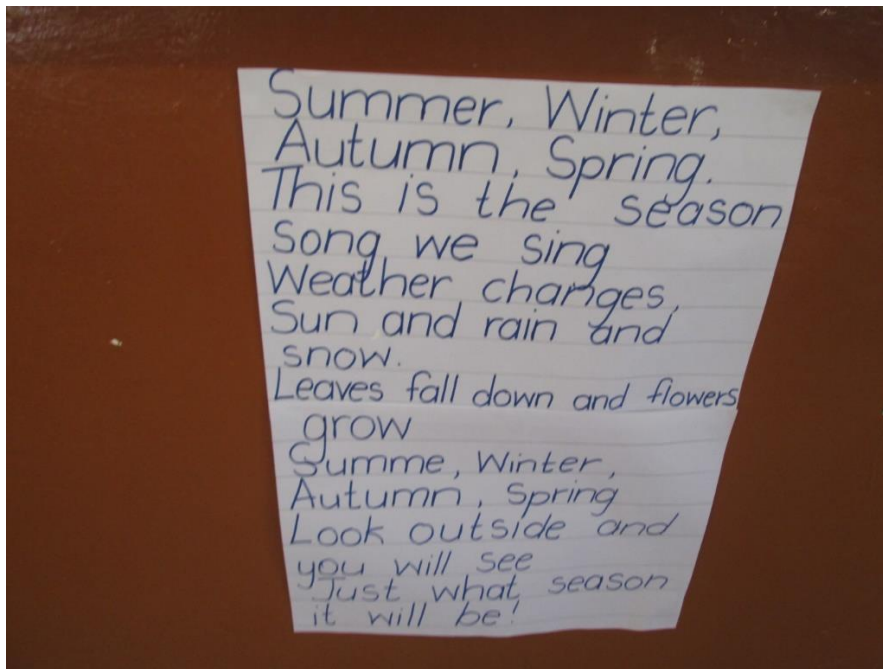 Summer, Winter,
Autumn, Spring.
This is the season
song we sing
Weather changes,
Sun and rain and
snow.
Leaves fall down and flowers
grow
Summe, Winter,
Autumn, Spring
Look outside and
you will see
Just what season
it will be!